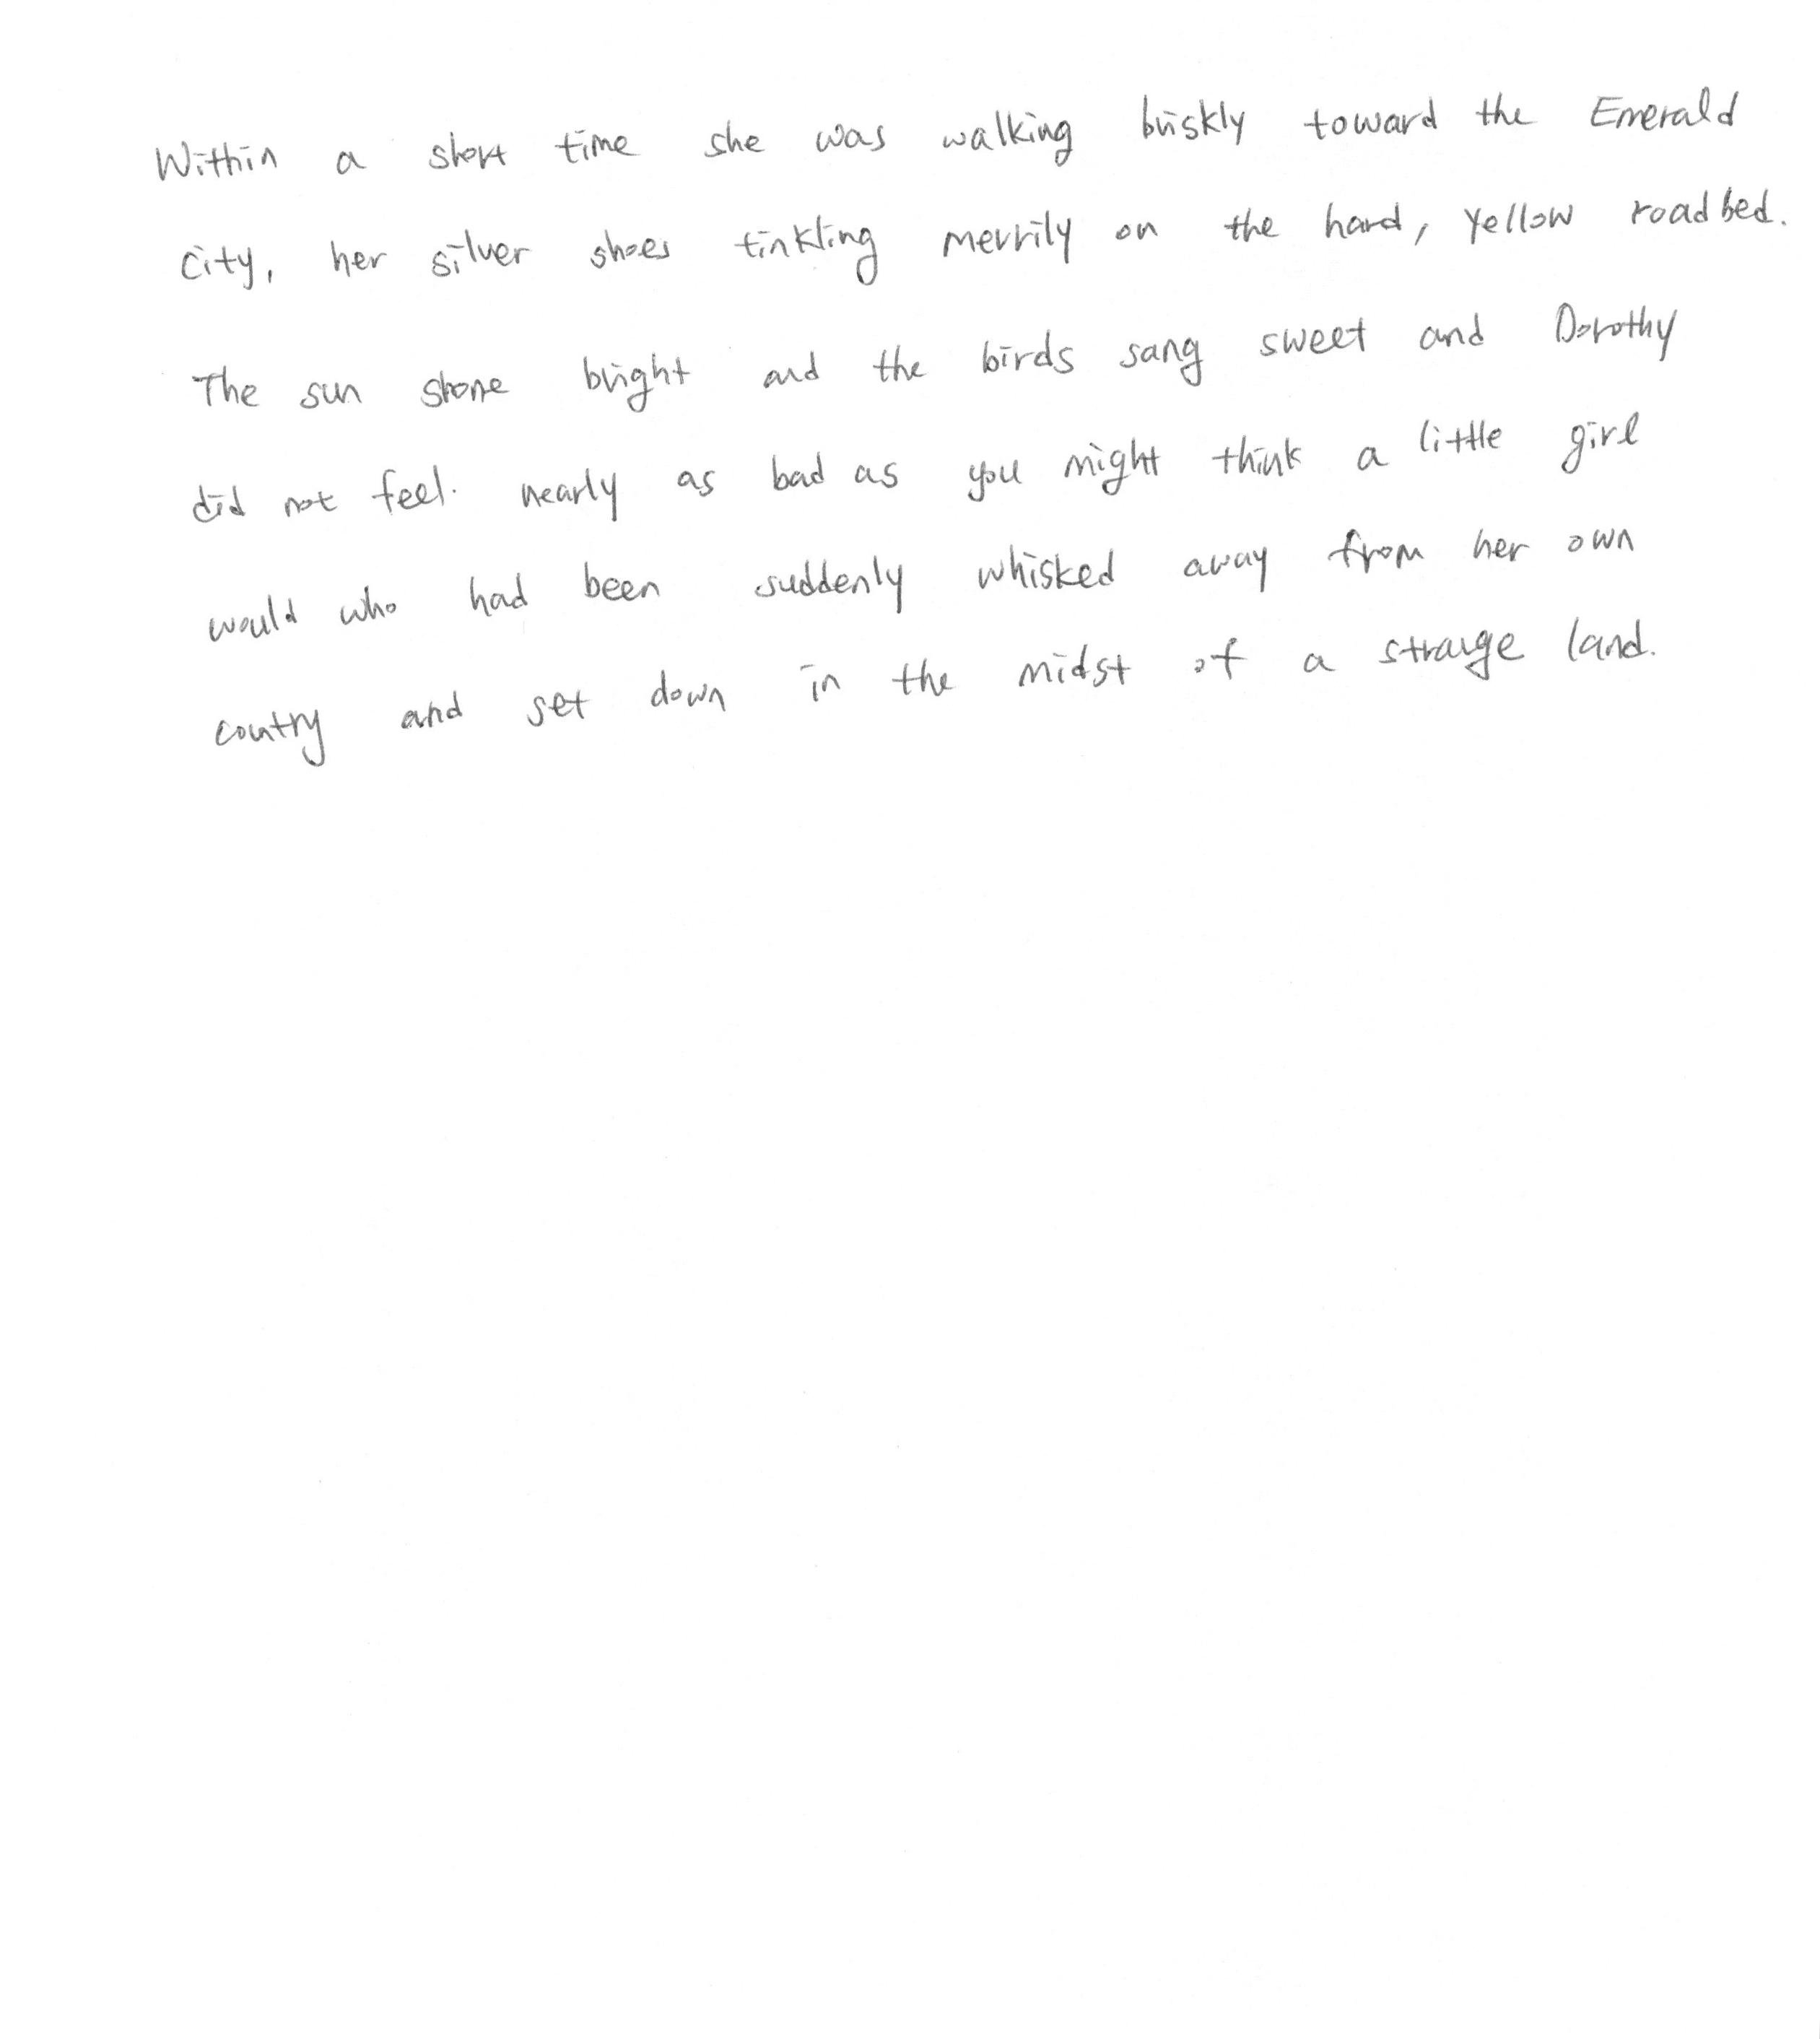 Within a short time she was walking briskly toward the Emerald
City, her silver shoes tinkling merrily on the hard, yellow roadbed.
The sun shone bright and the birds sang sweet and Dorothy
did not feel. nearly as bad as you might think a little girl
would who had been suddenly whisked away from her own
country and set down in the midst of a strange land.